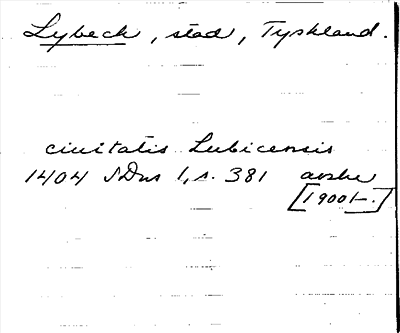 Lybeck, stad, Tyskland.
ciuitatis Lubicensis
1404 SDns 1, s. 381 avskr
[1900t.]